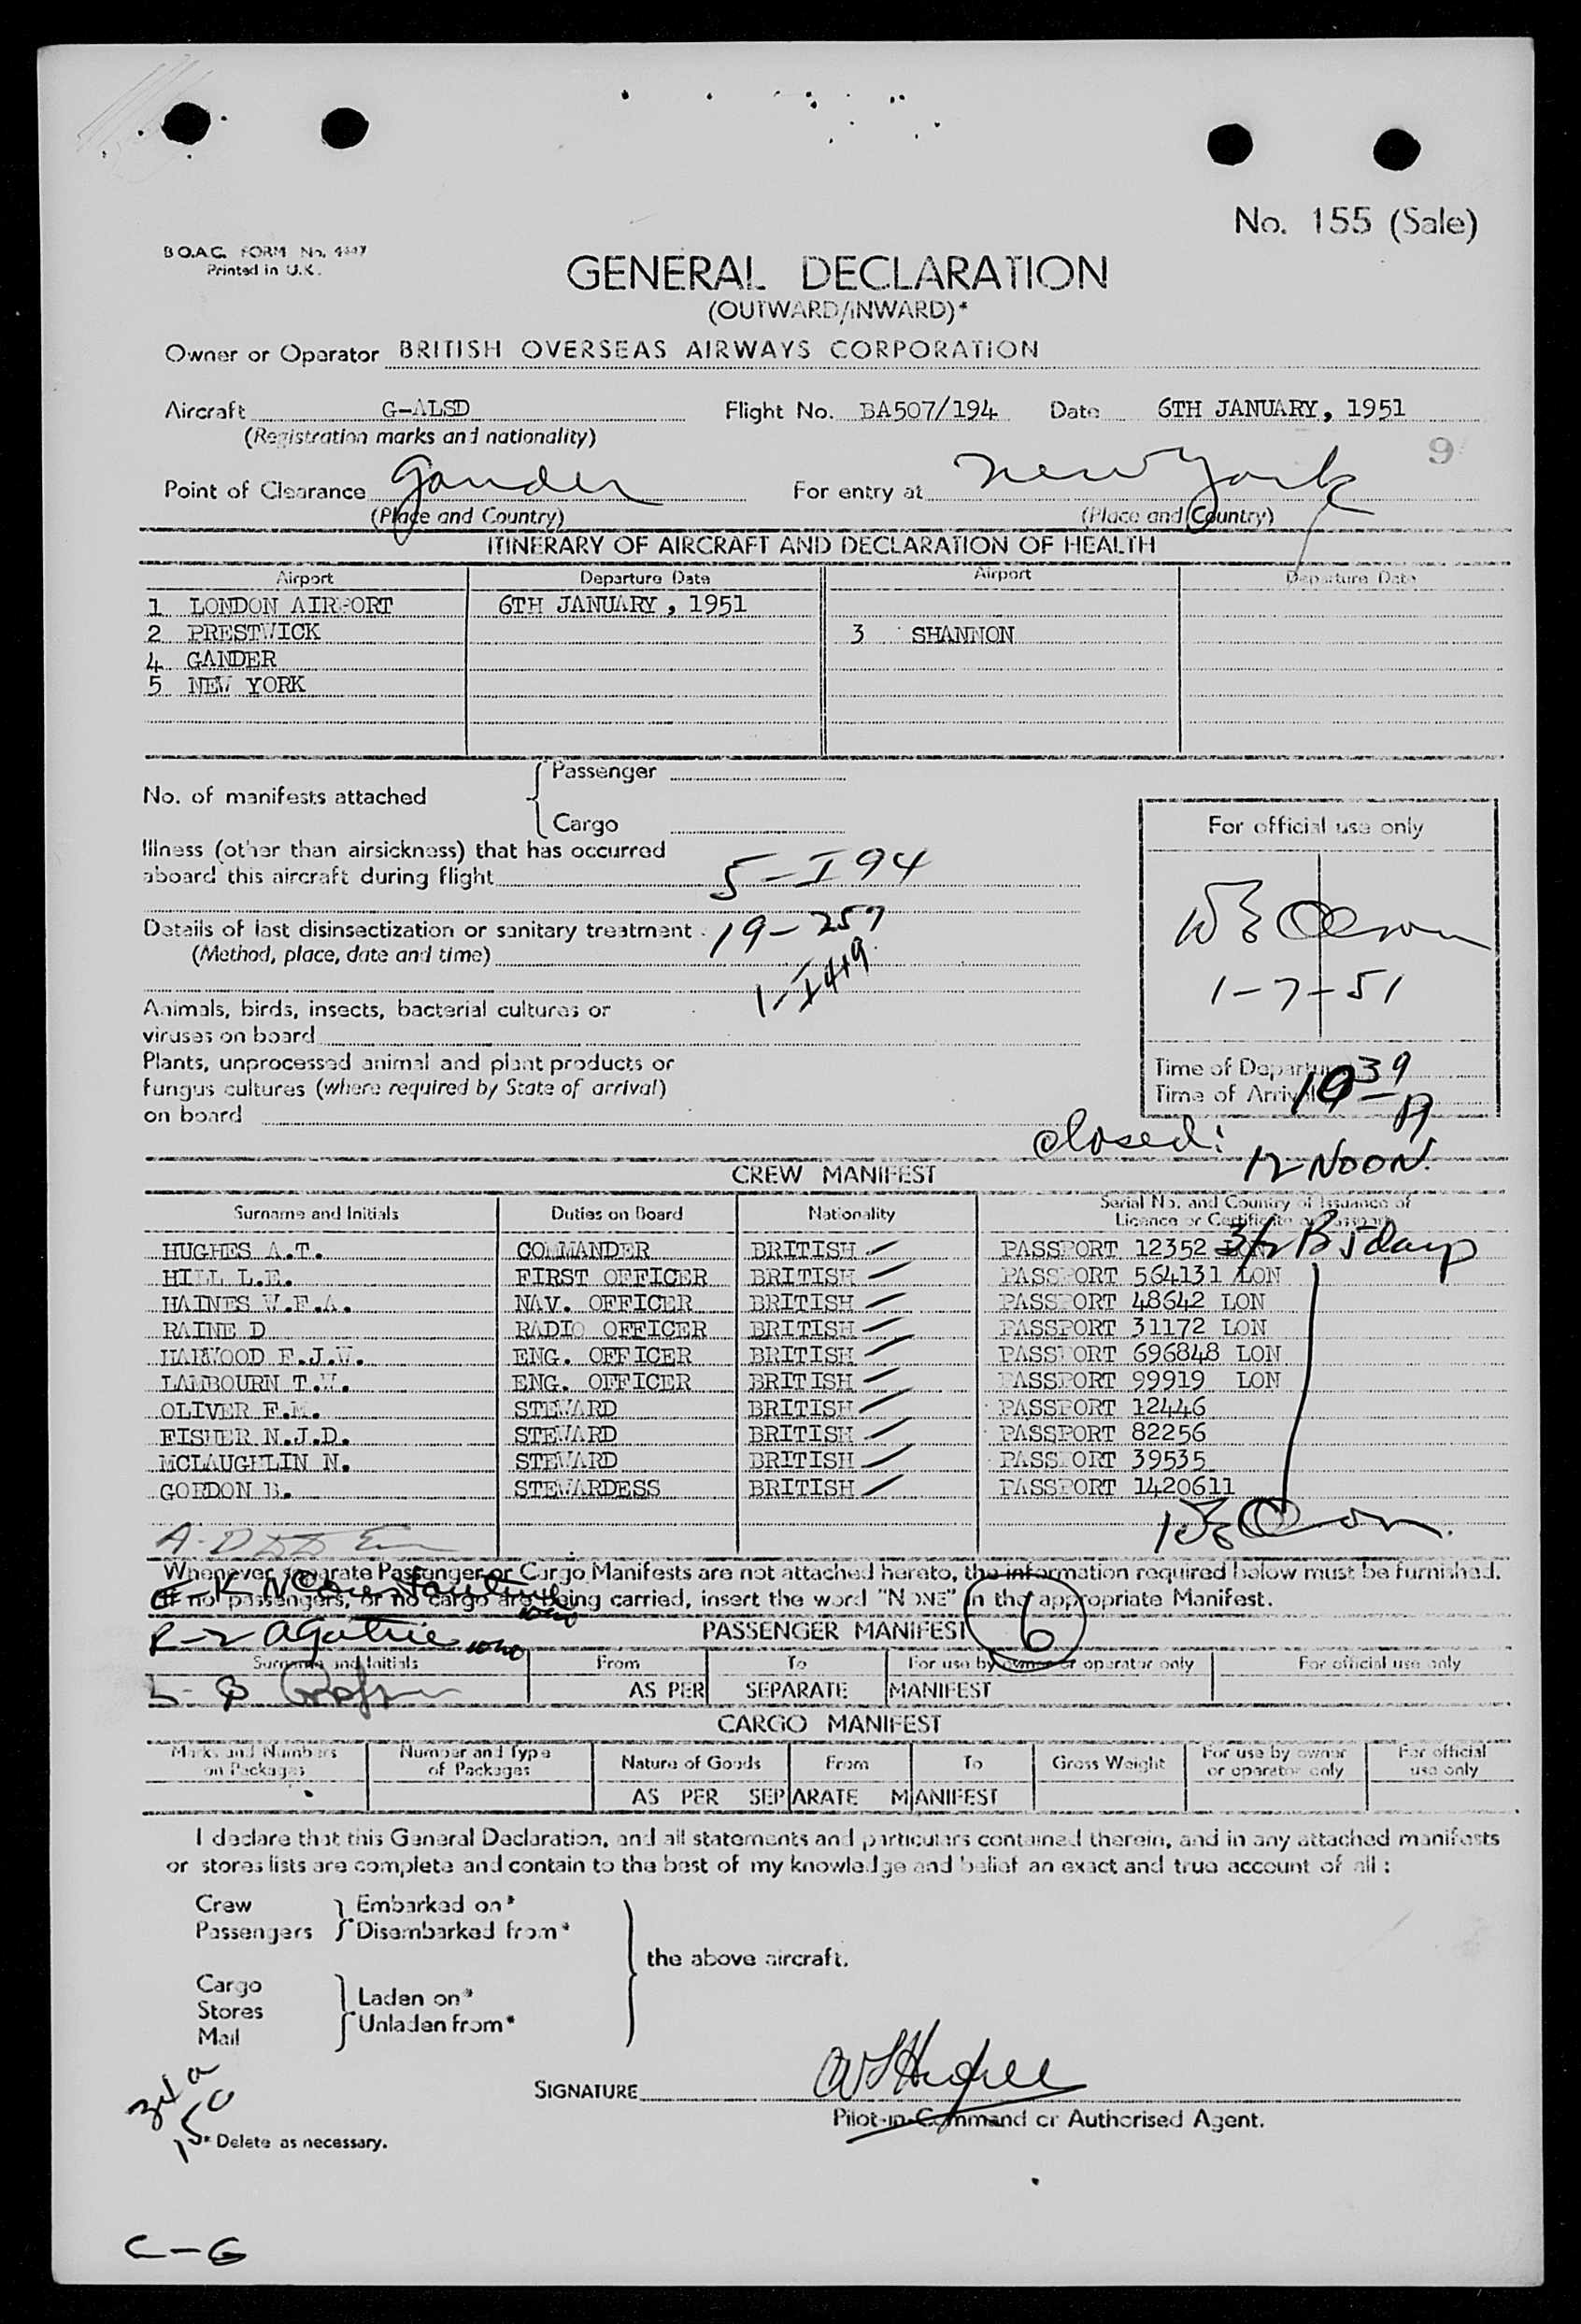 No. 155 (Sale)
B.O.A.C. FORM No.
Printed in U.K.
GENERAL DECLARATION
(OUTWARD/INWARD)*
Owner or Operator BRITISH OVERSEAS AIRWAYS CORPORATION
Aircraft G-ALSD Flight No. BA507/194 Date 6TH JANUARY, 1951
(Registration marks and nationality)
9
Point of Clearance Gander For entry at New York
(Place and Country) (Place and Country)
ITINERARY OF AIRCRAFT AND DECLARATION OF HEALTH
Airport Departure Date Airport Departure Date
1 LONDON AIRPORT 6TH JANUARY, 1951
2 PRESTWICK 3 SHANNON
4 GANDER
5 NEW YORK
No. of manifests attached { Passenger
Cargo
For official use only
Illness (other than airsickness) that has occurred
aboard this aircraft during flight 5-I94
Details of last disinsectization or sanitary treatment 19-257
(Method, place, date and time)
1-I419
Olson
1-7-51
Animals, birds, insects, bacterial cultures or
viruses on board
Plants, unprocessed animal and plant products or
fungus cultures (where required by State of arrival)
on board
Time of Departure
Time of Arrival 10 39 A
closed: 12 NOON.
CREW MANIFEST
Surname and Initials Duties on Board Nationality Serial No. and Country of Issuance of
Licence or Certificate or Passport
HUGHES A.T. COMMANDER BRITISH PASSPORT 12352 3/2 B 5 days
HILL L.E. FIRST OFFICER BRITISH PASSPORT 564131 LON
HAINES W.F.A. NAV. OFFICER BRITISH PASSPORT 48642 LON
RAINE D RADIO OFFICER BRITISH PASSPORT 31172 LON
HARWOOD F.J.W. ENG. OFFICER BRITISH PASSPORT 696848 LON
LAMBOURN T.W. ENG. OFFICER BRITISH PASSPORT 99919 LON
OLIVER F.M. STEWARD BRITISH PASSPORT 12446
FISHER N.J.D. STEWARD BRITISH PASSPORT 82256
MCLAUGHLIN N. STEWARD BRITISH PASSPORT 39535
GORDON B. STEWARDESS BRITISH PASSPORT 1420611
Olson
Whenever separate Passenger or Cargo Manifests are not attached hereto, the information required below must be furnished.
If no passengers, or no cargo are being carried, insert the word "NONE" in the appropriate Manifest.
PASSENGER MANIFEST 6
Surname and Initials From To For use by owner or operator only For official use only
AS PER SEPARATE MANIFEST
CARGO MANIFEST
Marks and Numbers on Packages Number and Type of Packages Nature of Goods From To Gross Weight For use by owner or operator only For official use only
AS PER SEPARATE MANIFEST
I declare that this General Declaration, and all statements and particulars contained therein, and in any attached manifests
or stores lists are complete and contain to the best of my knowledge and belief an exact and true account of all :
Crew } Embarked on*
Passengers } Disembarked from*
the above aircraft.
Cargo
Stores } Laden on*
Mail } Unladen from*
SIGNATURE
Pilot-in-Command or Authorised Agent.
* Delete as necessary.
C-G